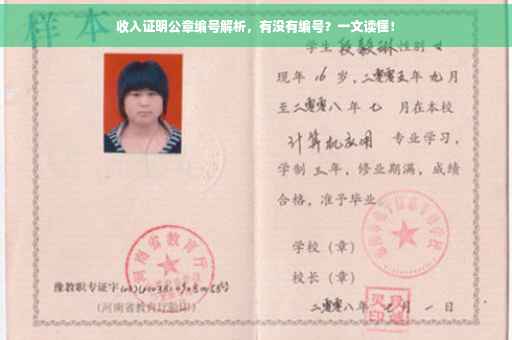 收入证明公章编号解析，有没有编号？一文读懂！
样本
学生 段毅琳 性别 女
现年 16 岁，二零零五年 九 月
至二零零八 年 七 月在本校
计算机应用 专业学习，
学制 三 年，修业期满，成绩
合格，准予毕业。
学校（章）
校长（章）
二零零八年 七 月 一 日
河南省教育厅
豫教职专证字
（河南省教育厅验印）